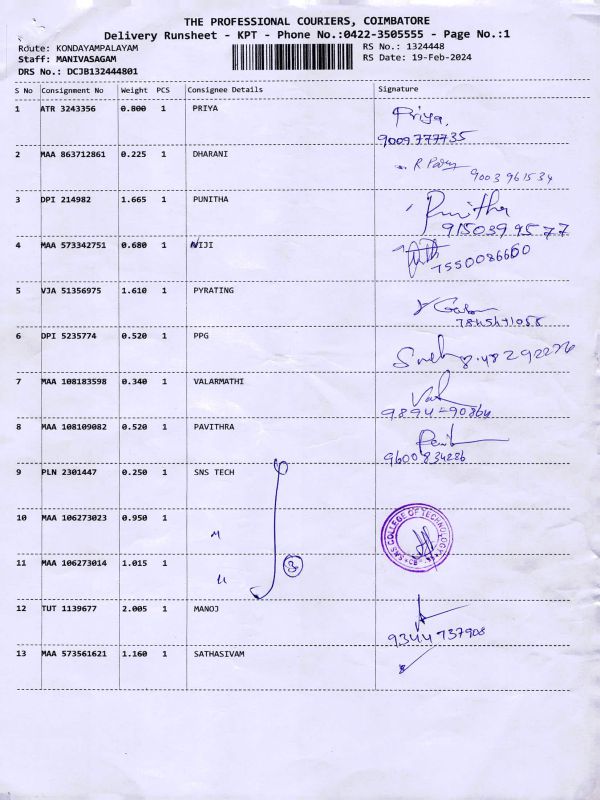 THE PROFESSIONAL COURIERS, COIMBATORE
Delivery Runsheet - KPT - Phone No.:0422-3505555 - Page No.:1
Route: KONDAYAMPALAYAM
RS No.: 1324448
Staff: MANIVASAGAM
RS Date: 19-Feb-2024
DRS No.: DCJB132444801
S No Consignment No Weight PCS Consignee Details Signature
1 ATR 3243356 0.800 1 PRIYA Priya,
9009777735
2 MAA 863712861 0.225 1 DHARANI
9003961534
3 DPI 214982 1.665 1 PUNITHA Punitha
9150399577
4 MAA 573342751 0.680 1 NIJI
7550086660
5 VJA 51356975 1.610 1 PYRATING
6 DPI 5235774 0.520 1 PPG
7 MAA 108183598 0.340 1 VALARMATHI
8 MAA 108109082 0.520 1 PAVITHRA
9600834286
9 PLN 2301447 0.250 1 SNS TECH
10 MAA 106273023 0.950 1
SNS COLLEGE OF TECHNOLOGY
11 MAA 106273014 1.015 1
3
12 TUT 1139677 2.005 1 MANOJ
9344737908
13 MAA 573561621 1.160 1 SATHASIVAM